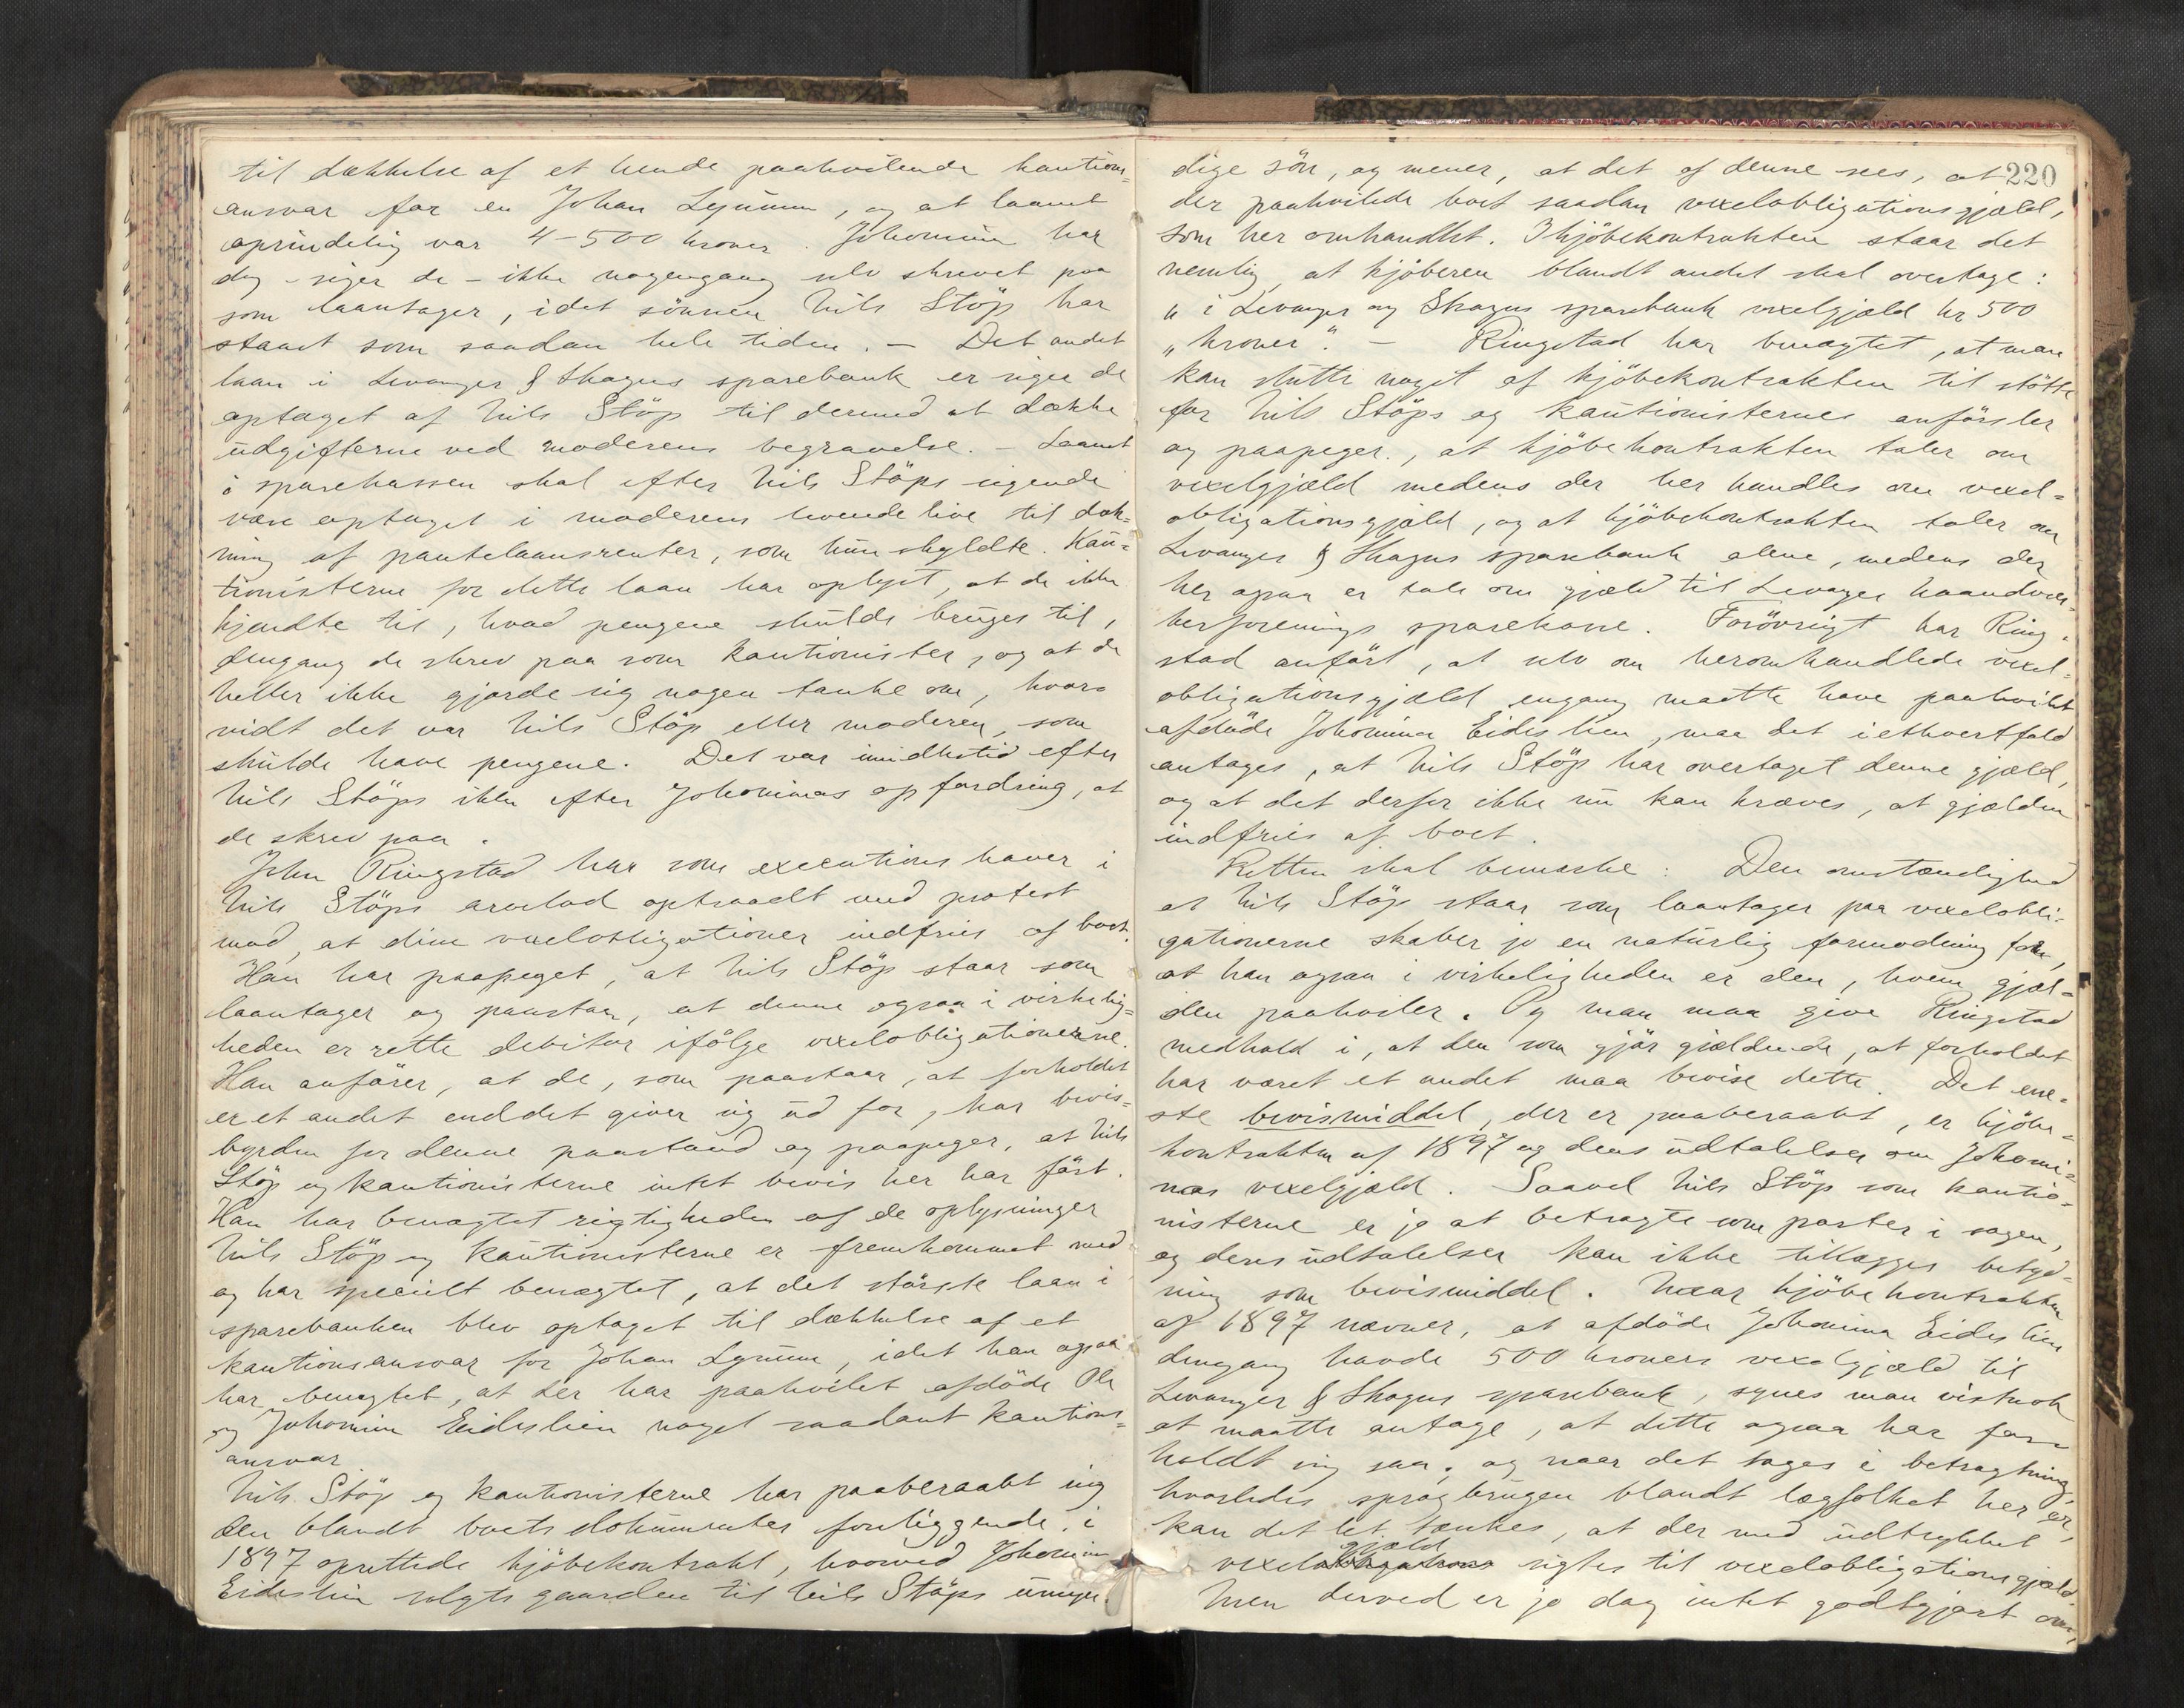 til dækkelse af et hende paahvilende kautions=
ansvar for en Johan Lynum, og at laanet
oprindelig var 4-500 kroner. Johanna har
dog - siger de - ikke nogengang selv skrevet paa
som laantager, idet sönnen Nils Stöp har
staaet som saadan hele tiden. - Det andet
laan i Levanger & Skogns sparebank er siger de
optaget af Nils Stöp til dermed at dække
udgifterne ved moderens begravelse. - Laanet
i sparekassen skal efter Nils Stöps sigende
være optaget i moderens levende live til dæk=
ning af pantelaansrenter, som hun skyldte. Kau=
tionisterne for dette laan har oplyst, at de ikke
kjendte til, hvad pengene skulde bruges til,
dengang de skrev paa som kautionister, og at de
heller ikke gjorde sig nogen tanke om, hvor-
vidt det var Nils Stöp eller moderen, som
skulde have pengene. Det var imidlertid efter
Nils Stöps ikke efter Johannas opfordring, at
de skrev paa.
John Ringstad har som executionshaver i
Nils Stöps arvelod optraadt med protest
mod, at disse vexelobligationer indfries af boet.
Han har paapeget, at Nils Stöp staar som
laantager og paastaar, at denne ogsaa i virkelig=
heden er rette debitor ifölge vexelobligationerne.
Han anförer, at de, som paastaar, at forholdet
er et andet end det giver sig ud for, har bevis=
byrden for denne paastand og paapeger, at Nils
Stöp og kautionisterne intet bevis her har fört.
Han har benægtet rigtigheden af de oplysninger
Nils Stöp og kautionisterne er fremkommet med
og har specielt benægtet, at det störste laan i
sparebanken blev optaget til dækkelse af et
kautionsansvar for Johan Lynum, idet han ogsaa
har benægtet, at der har paahvilet afdöde Ole
og Johanna Eideslien noget saadant kautions=
ansvar.
Nils Stöp og kautionisterne har paaberaabt sig
den blandt boets dokumenter foreliggende, i
1897 oprettede kjöbekontrakt, hvorved Johanna
Eideslien solgte gaarden til Nils Stöps umyn-
220
dige sön, og mener, at det af denne sees, at
der paahvilede boet saadan vexelobligationsgjæld,
som her omhandlet. I kjöbekontrakten staar det
nemlig, at kjöberen blandt andet skal overtage:
„ i Levanger og Skogns sparebank vexelgjæld kr 500
„ kroner". - Ringstad har benægtet, at man
kan slutte noget af kjöbekontrakten til stötte
for Nils Stöps og kautionisternes anförsler
og paapeger, at kjöbekontrakten taler om
vexelgjæld medens der her handles om vexel=
obligationsgjæld, og at kjöbekontrakten taler om
Levanger & Skogns sparebank alene, medens der
her ogsaa er tale om gjæld til Levanger haandvær=
kerforenings sparekasse. Forövrigt har Ring-
stad anfört, at selv om heromhandlede vexel-
obligationsgjæld engang maatte have paahvilet
afdöde Johanna Eideslien, maa det i ethvertfald
antages, at Nils Stöp har overtaget denne gjæld,
og at det derfor ikke nu kan kræves, at gjælden
indfries af boet.
Retten skal bemærke: Den omstændighed
at Nils Stöp staar som laantager paa vexelobli-
gationerne skaber jo en naturlig formodning for,
at han ogsaa i virkeligheden er den, hvem gjæl=
den paahviler. Og man maa give Ringstad
medhold i, at den som gjör gjældende, at forholdet
har været et andet maa bevise dette. Det ene-
ste bevismiddel, der er paaberaabt, er kjöbe=
kontrakten af 1897 og dens udtalelser om Johan-
nas vexelgjæld. Saavel Nils Stöp som kautio-
nisterne er jo at betragte som parter i sagen,
og deres udtalelser kan ikke tillægges betyd=
ning som bevismiddel. Naar kjöbekontrakten
af 1897 nævner, at afdöde Johanna Eideslien
dengang havde 500 kroners vexelgjæld til
Levanger & Skogns sparebank, synes man vistnok
at maatte antage, at dette ogsaa har for-
holdt sig saa, og naar det tages i betragtning
hvorledes sprogbrugen blandt lægfolket her er,
kan det let tænkes, at der med udtrykket
gjæld
vexel sigtes til vexelobligationsgjæld.
Men derved er jo dog intet godtgjort om,